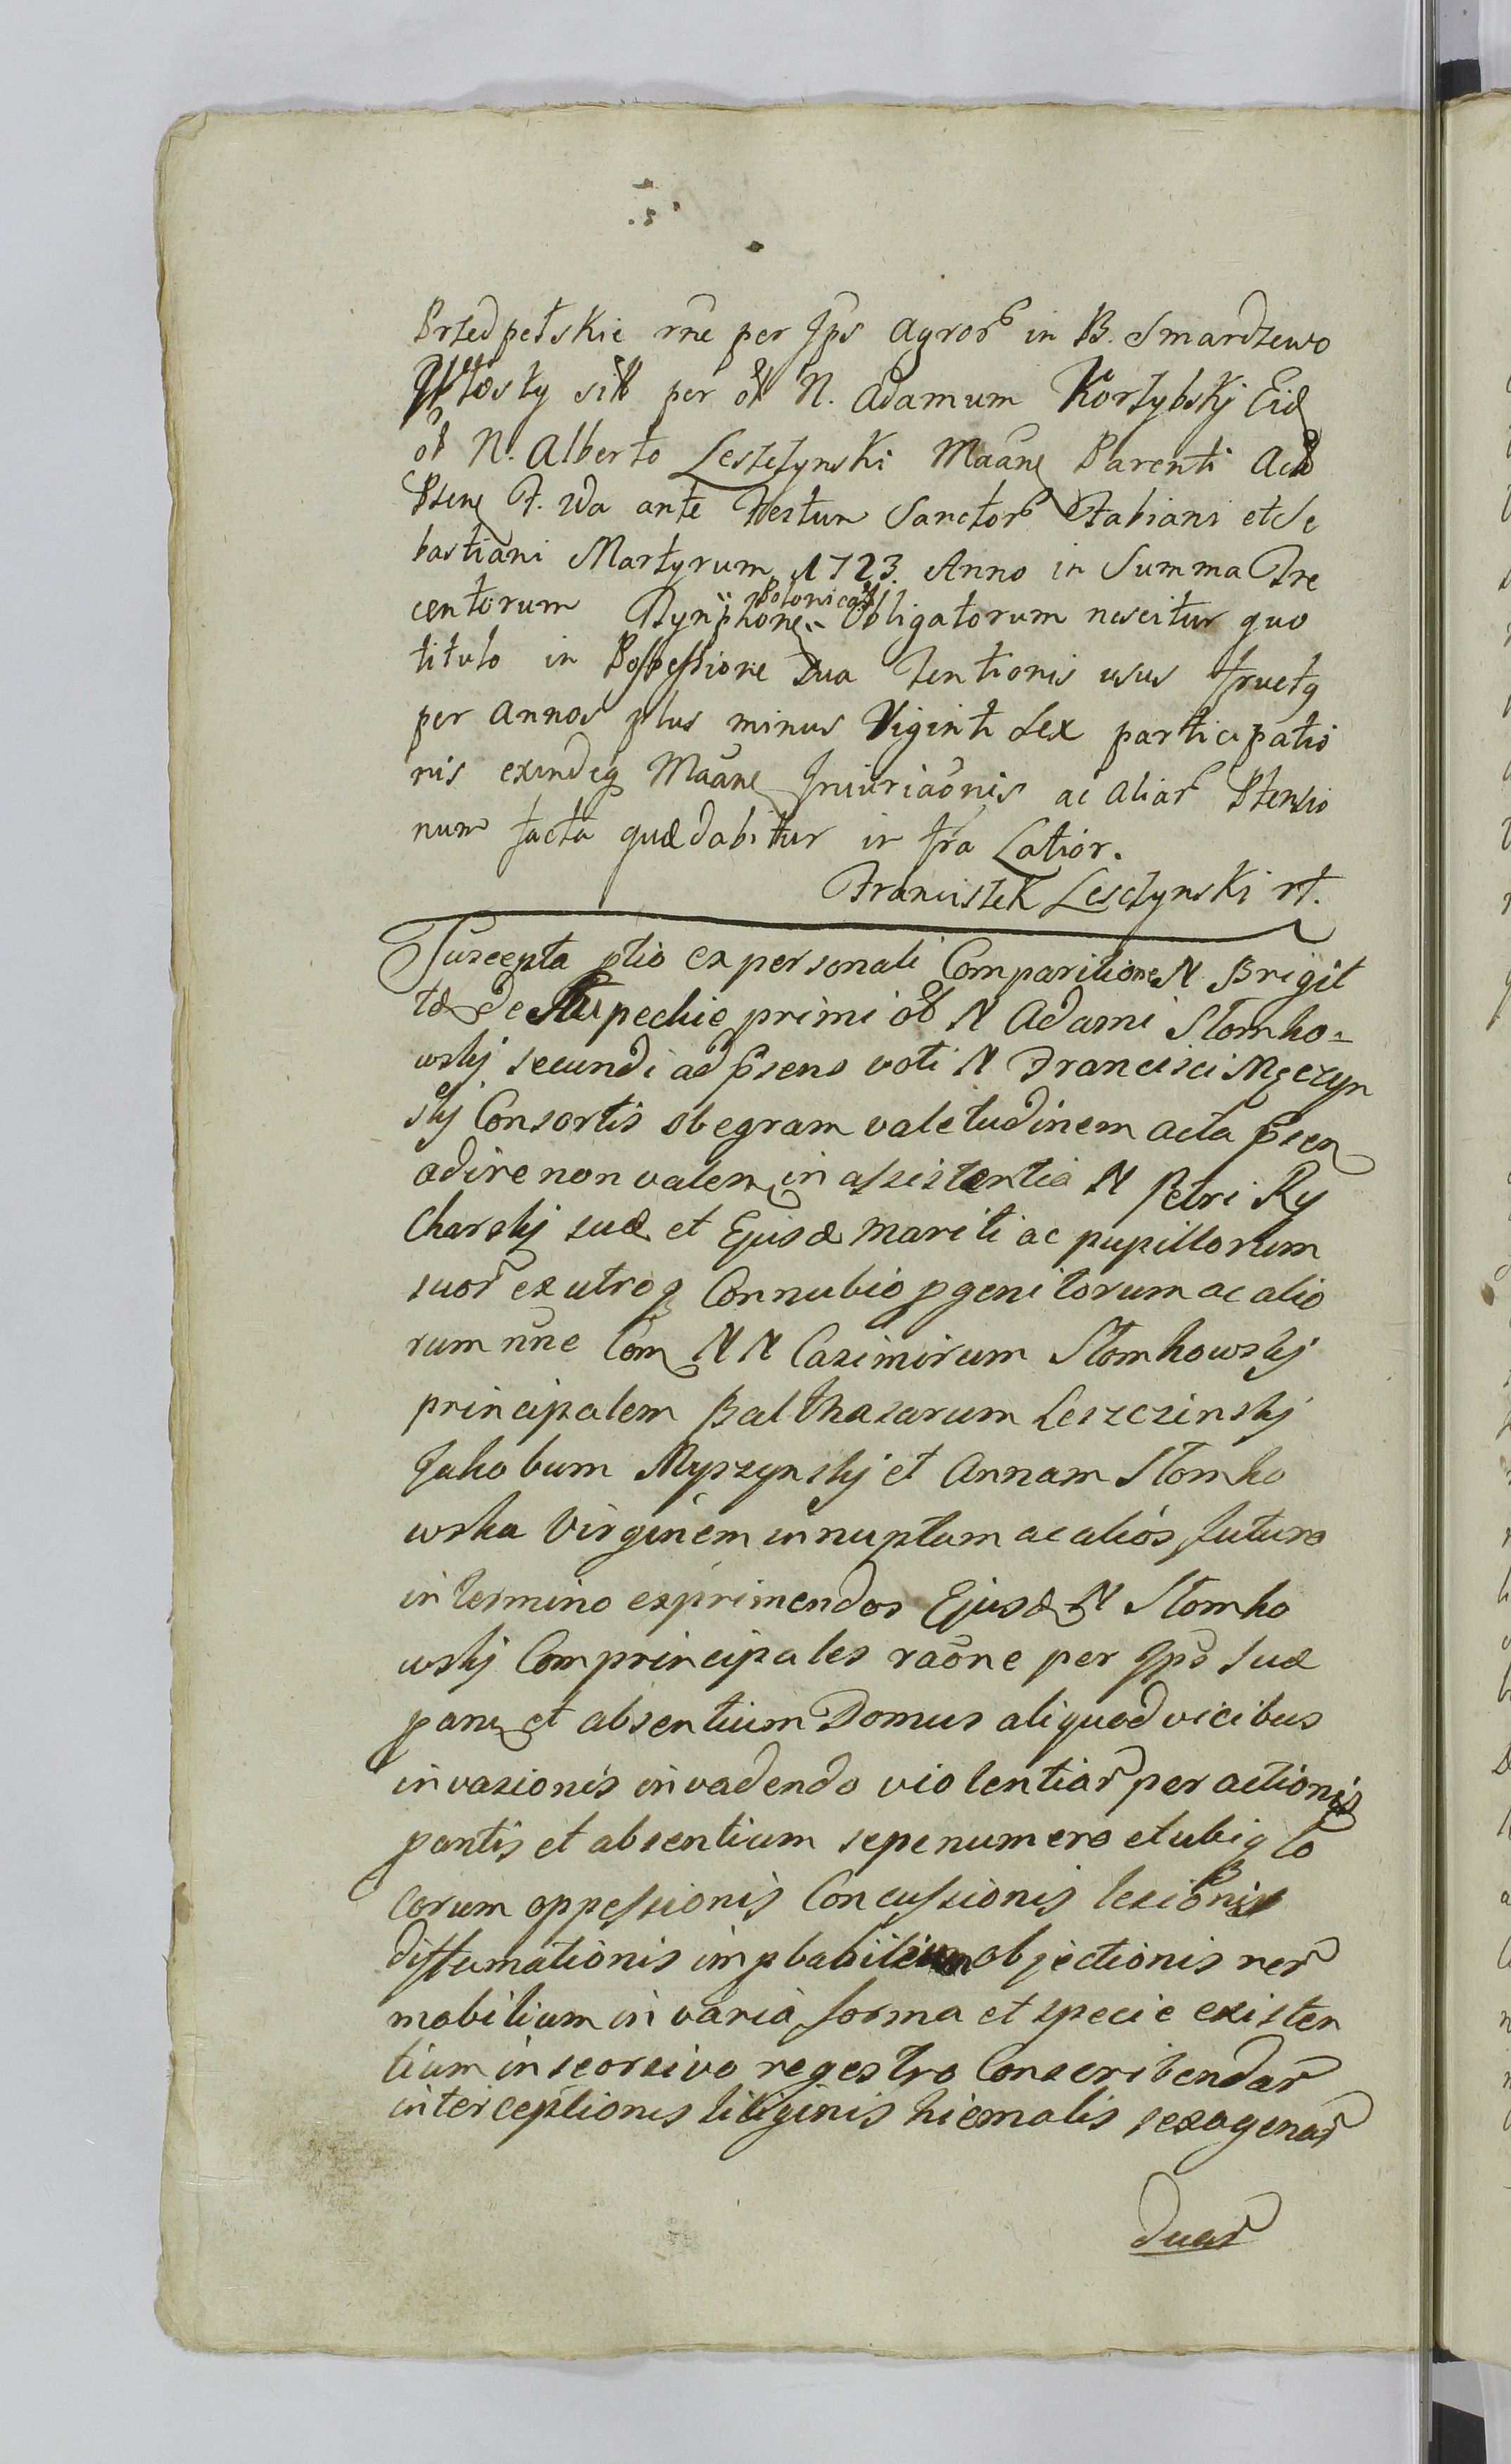 Przedpełskie rne per Jps Agror in B. Smardzewo
Włosty sitt per ol N. Adamum Korzybskj Eid
ol N. Alberto Leszczynski Maane Parenti Acto
Psens F. 2da ante Festum Sanctor Fabiani et Se
bastiani Martyrum 1723. Anno in Summa Tre
centorum Tynphone Polonical Obligatorum nescitur quo
titulo in Possessione Sua Tentionis usus fructq
per Annos plus minus Viginti Sex participatio
nis exindeq Maane Iniuriaonis ac aliar Ptensio
num facta quæ dabitur in fra Latior.
Franciszek Lesczynski rt.
Suscepta ptio ex personali Comparitione N Brigit
tæ de Słupeckie primi ol N Adami Słomko=
wskj secundi ad psens voti N Francisci Męczyn
skj Consortis ob egram valetudinem acta psen
adire non valen in assistentia N Petri Ry
charskj suæ et Ejusd mariti ac pupillorum
suor ex utroq Connubio pgenitorum ac alio
rum nne Com N N Casimirum Słomkowskj
principalem Balthasarum Leszczinskj
Jakobum Myszynskj et Annam Słomko
wska Virginem innuptam ac aliós futuro
in termino exprimendos Ejusd N Słomko
wskj Comprincipales raone per Jps suæ
pane et absentium Domus aliquod vicibus
invasionis invadendo violentiar per actionis
pantis et absentium sepenumero et ubiq lo
corum oppessionis Concussionis lesionis
diffamationis impbabilium objectionis rer
mobilium in varia forma et specie existen
tium in seorsivo regestro Conscribendar
interceptionis siliginis hiemalis sexagenar
duar